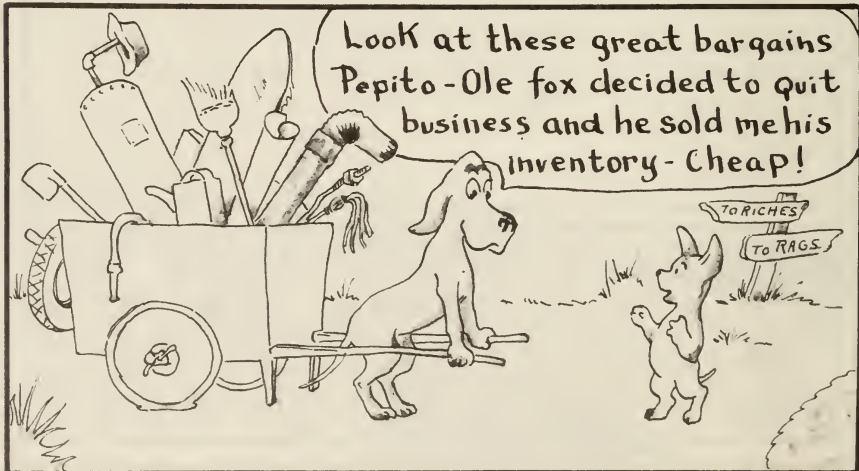 Look at these great bargains
Pepito-Ole fox decided to quit
business and he sold me his
inventory-Cheap!
TO RICHES
TO RAGS